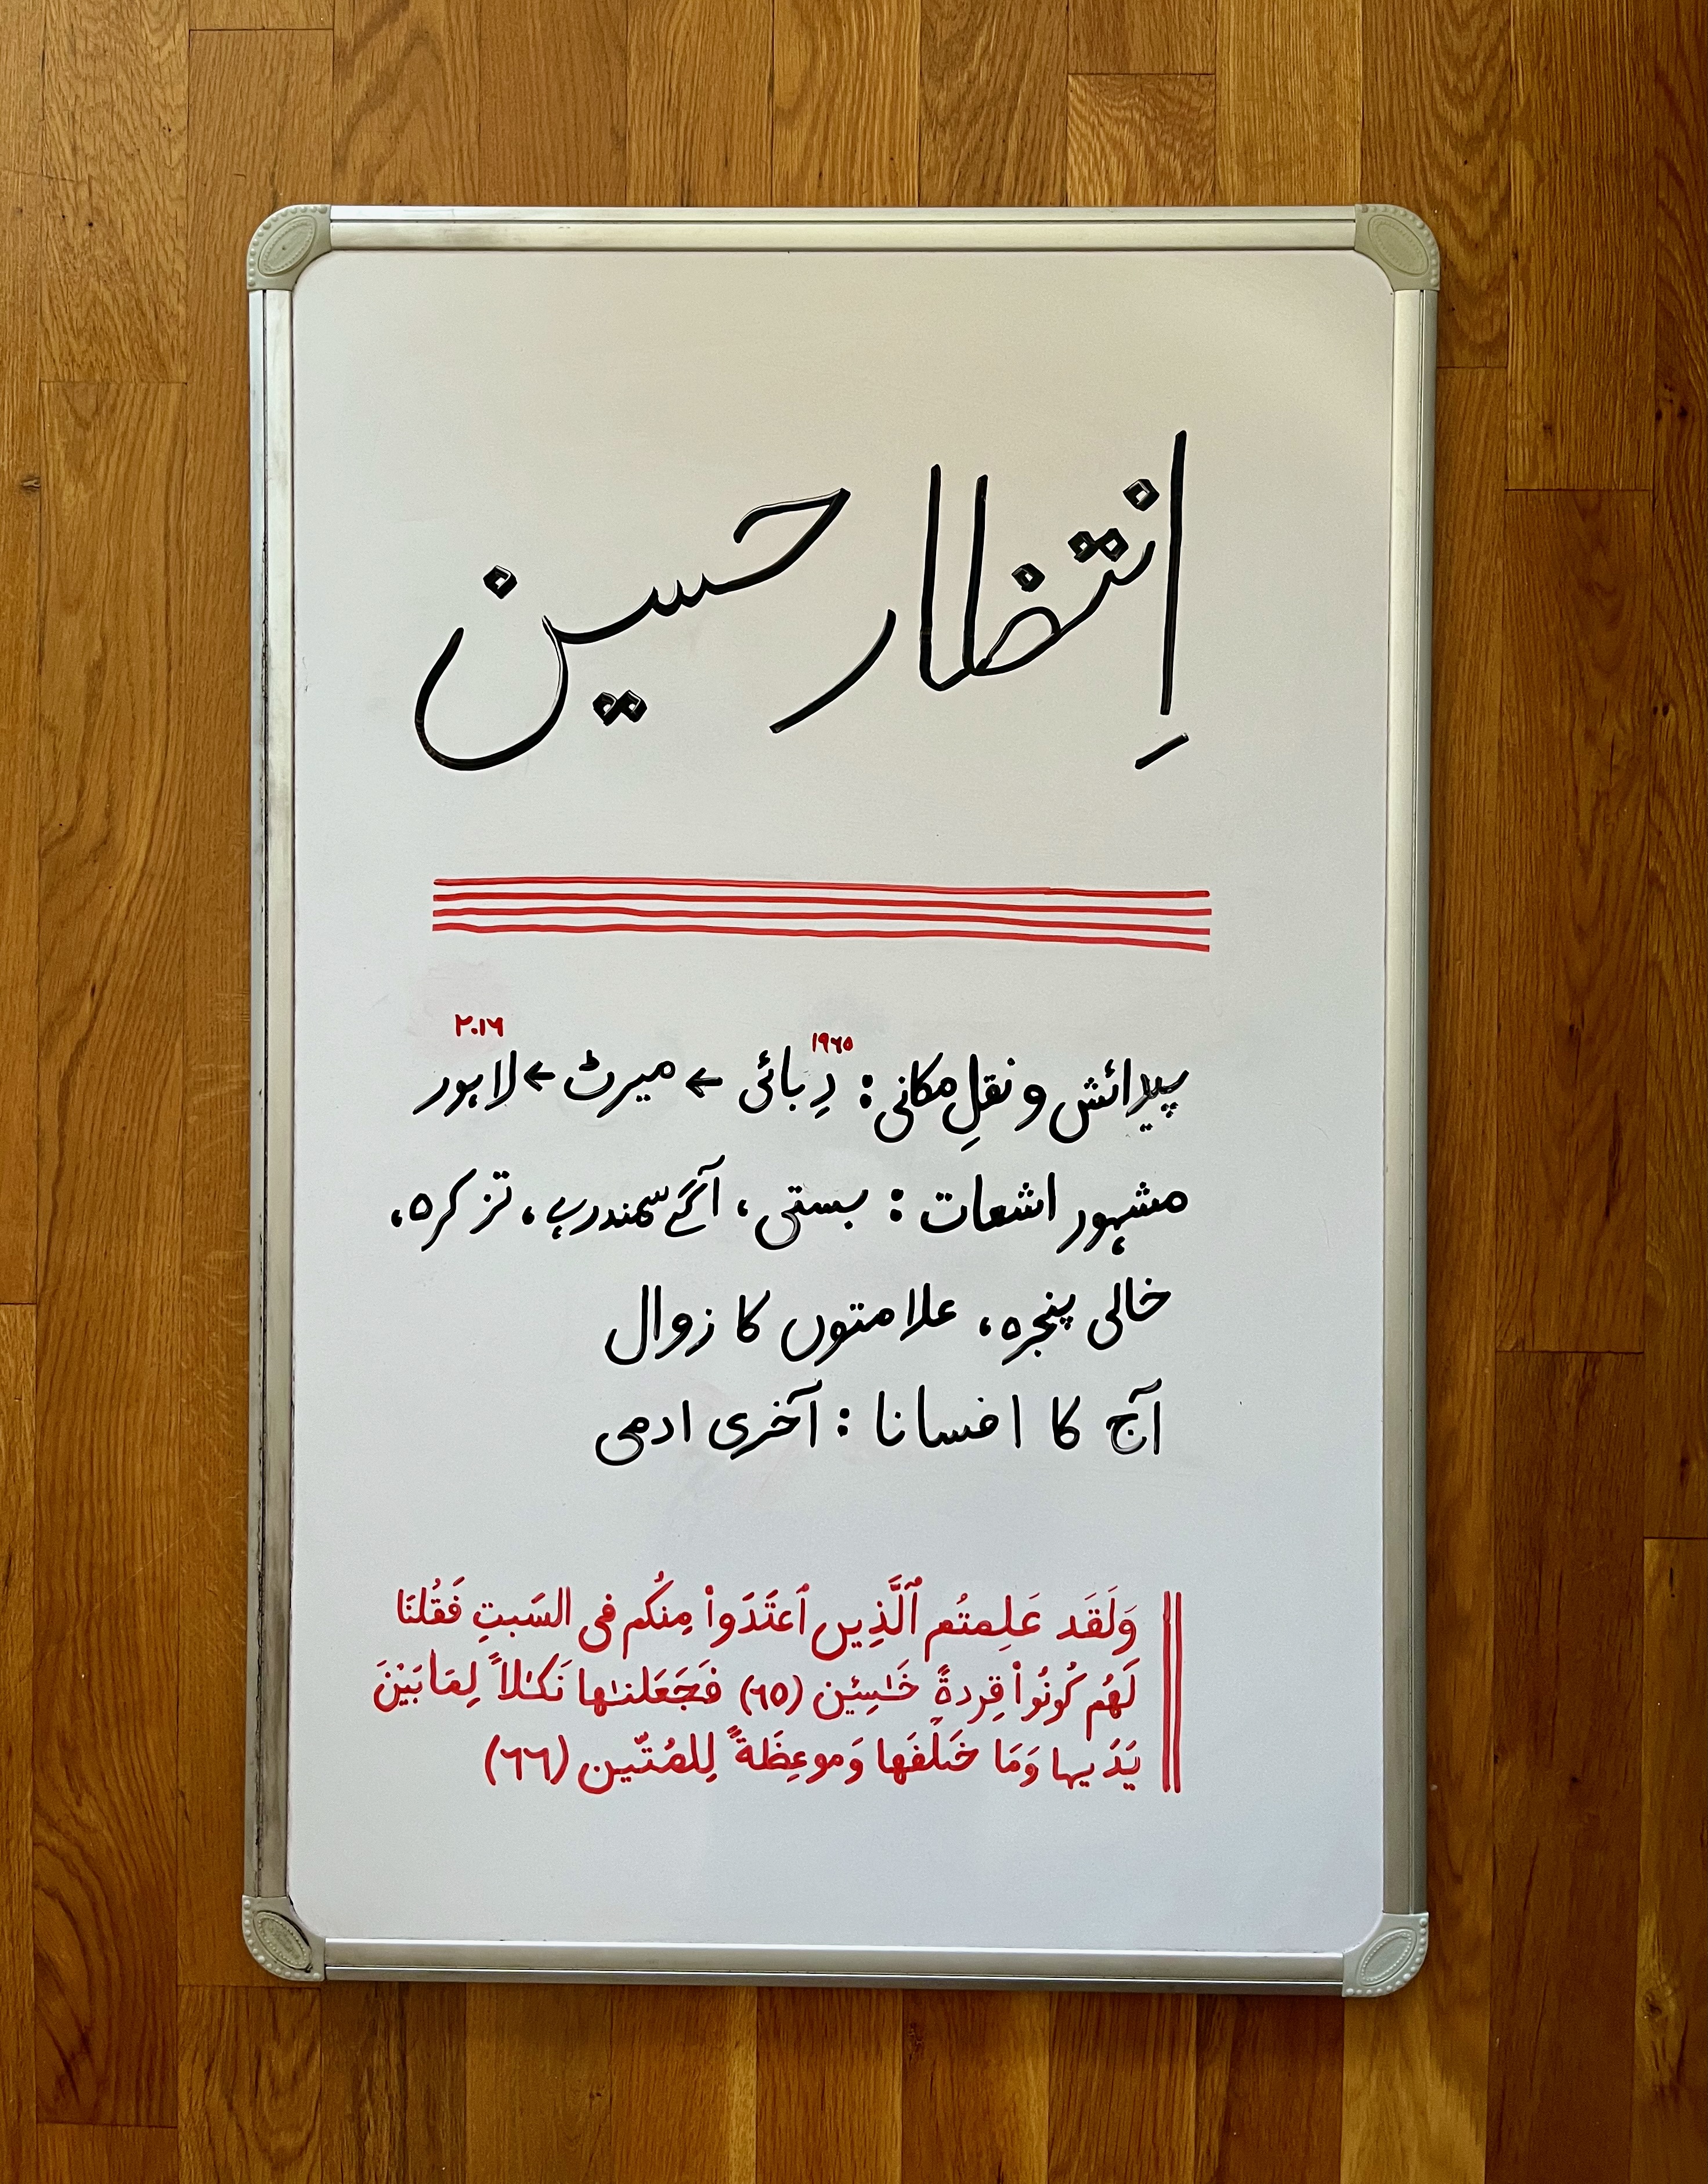 اِنتظار حسین
۲۰۱۶
۱۹۲۵
پیدائش و نقلِ مکانی: دِبائی ← میرٹ ← لاہور
مشہور اشعات: بستی، آگے سمندر ہے، تزکرہ،
خالی پنجرہ، علامتوں کا زوال
آج کا افسانا: آخری ادمی
وَلَقَد عَلِمتُم ٱلَّذِين ٱعتَدَواْ مِنكُم فى السَبتِ فَقُلنَا
لَهُم كُونُواْ قِردةً خَـٰسِئِين (٦٥) فَجَعَلنـٰها نَكـٰلاً لِمَا بَيْنَ
يَدَيها وَمَا خَلْفَها وَموعِظَةً لِلمُتّين (٦٦)